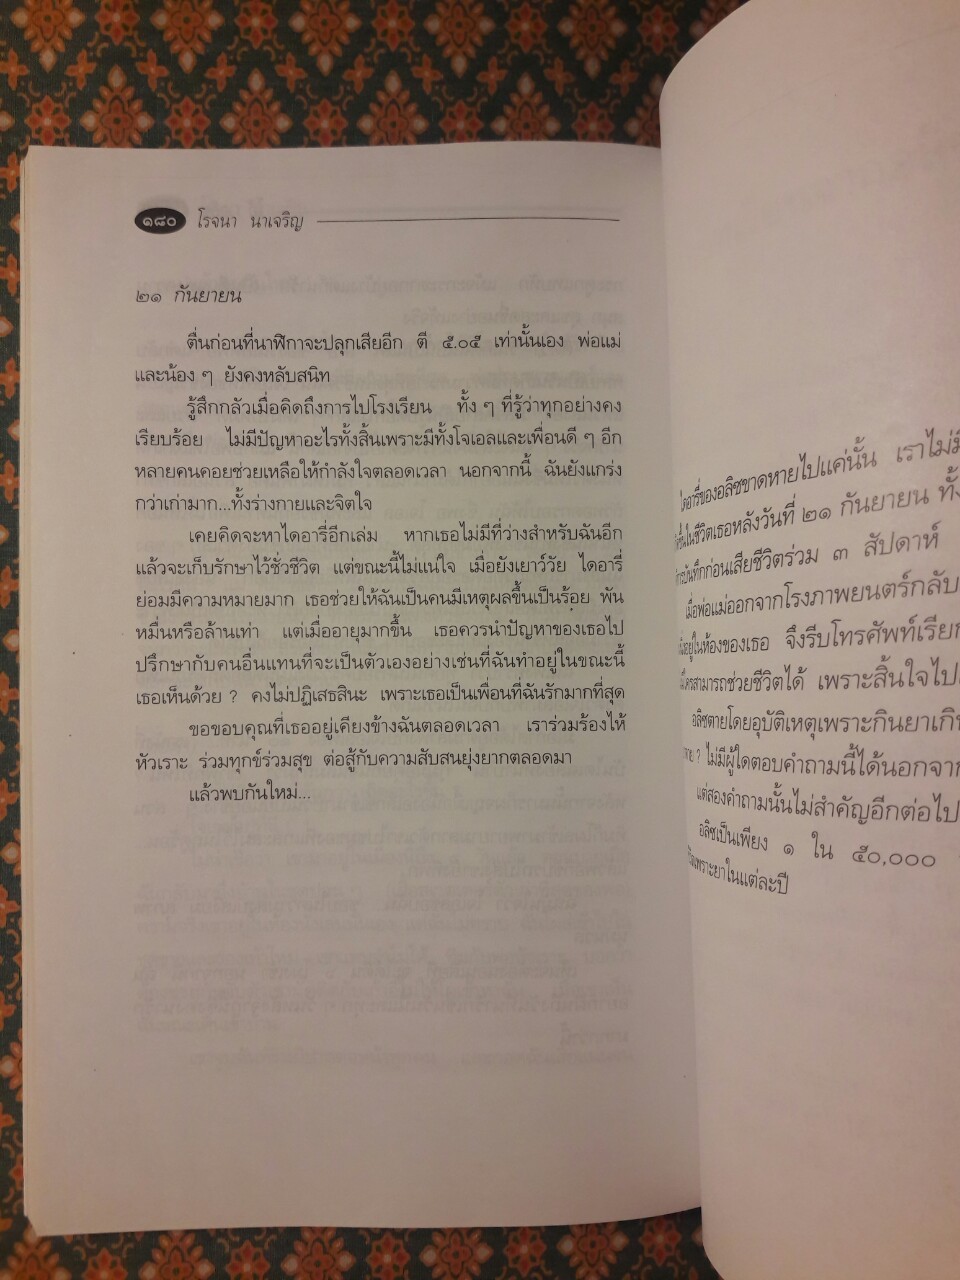 ๑๘๐ โรจนา นาเจริญ
๒๑ กันยายน
ตื่นก่อนที่นาฬิกาจะปลุกเสียอีก ตี ๕.๐๕ เท่านั้นเอง พ่อแม่
และน้อง ๆ ยังคงหลับสนิท
รู้สึกกลัวเมื่อคิดถึงการไปโรงเรียน ทั้ง ๆ ที่รู้ว่าทุกอย่างคง
เรียบร้อย ไม่มีปัญหาอะไรทั้งสิ้นเพราะมีทั้งโจเอลและเพื่อนดี ๆ อีก
หลายคนคอยช่วยเหลือให้กำลังใจตลอดเวลา นอกจากนี้ ฉันยังแกร่ง
กว่าเก่ามาก...ทั้งร่างกายและจิตใจ
เคยคิดจะหาไดอารี่อีกเล่ม หากเธอไม่มีที่ว่างสำหรับฉันอีก
แล้วจะเก็บรักษาไว้ชั่วชีวิต แต่ขณะนี้ไม่แน่ใจ เมื่อยังเยาว์วัย ไดอารี่
ย่อมมีความหมายมาก เธอช่วยให้ฉันเป็นคนมีเหตุผลขึ้นเป็นร้อย พัน
หมื่นหรือล้านเท่า แต่เมื่ออายุมากขึ้น เธอควรนำปัญหาของเธอไป
ปรึกษากับคนอื่นแทนที่จะเป็นตัวเองอย่างเช่นที่ฉันทำอยู่ในขณะนี้
เธอเห็นด้วย ? คงไม่ปฏิเสธสินะ เพราะเธอเป็นเพื่อนที่ฉันรักมากที่สุด
ขอขอบคุณที่เธออยู่เคียงข้างฉันตลอดเวลา เราร่วมร้องไห้
หัวเราะ ร่วมทุกข์ร่วมสุข ต่อสู้กับความสับสนยุ่งยากตลอดมา
แล้วพบกันใหม่...
ไดอารี่ของอลิซขาดหายไปแค่นั้น เราไม่มี
ในชีวิตเธอหลังวันที่ ๒๑ กันยายน ทั้ง
ก่อนเสียชีวิตร่วม ๓ สัปดาห์
เมื่อพ่อแม่ออกจากโรงภาพยนตร์กลับ
อยู่ในห้องของเธอ จึงรีบโทรศัพท์เรียก
สามารถช่วยชีวิตได้ เพราะสิ้นใจไป
อลิซตายโดยอุบัติเหตุเพราะกินยาเกิน
? ไม่มีผู้ใดตอบคำถามนี้ได้นอกจาก
แต่สองคำถามนั้นไม่สำคัญอีกต่อไป
อลิซเป็นเพียง ๑ ใน ๕๐,๐๐๐
เพราะยาในแต่ละปี